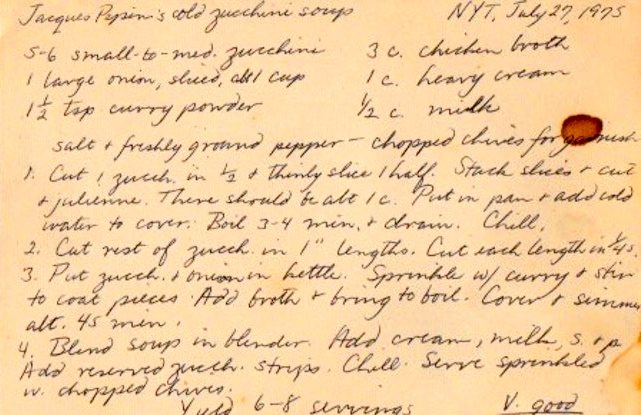 Jacques Pepin's cold zucchini soup NYT, July 27, 1975
5-6 small-to-med. zucchini 3 c. chicken broth
1 large onion, sliced, abt 1 cup 1 c. heavy cream
1 1/2 tsp curry powder 1/2 c. milk
salt + freshly ground pepper - chopped chives for garnish
1. Cut 1 zucch. in 1/2 + thinly slice 1 half. Stack slices + cut
+ julienne. There should be abt 1 c. Put in pan + add cold
water to cover. Boil 3-4 min. + drain. Chill.
2. Cut rest of zucch. in 1" lengths. Cut each length in 1/4s.
3. Put zucch. + onion in kettle. Sprinkle w/ curry + stir
to coat pieces. Add broth + bring to boil. Cover + simmer
abt. 45 min.
4. Blend soup in blender. Add cream, milk, s. + p.
Add reserved zucch. strips. Chill. Serve sprinkled
w. chopped chives.
Yield 6-8 servings V. good